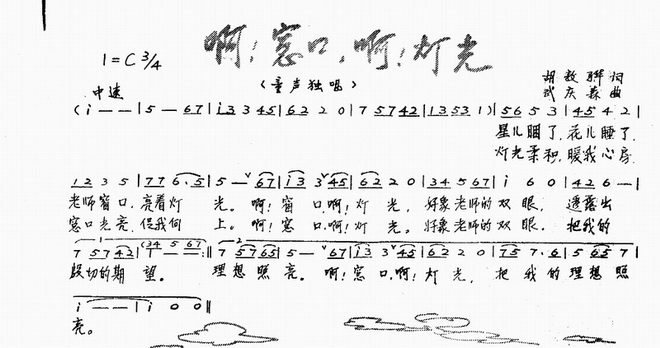 啊！窓口，啊！灯光
1=C 3/4
（童声独唱）
胡敦骅 词
中速
武庆森 曲
(i — — | 5 — 67 | i3 3 45 | 62 2 0 | 7 57 42 | 13 53 1) | 56 5 3 | 45 4 2 |
星儿睏了，花儿睡了，
灯光柔和，暖我心房，
12 3 5 | 77 6.5 | 5 — 67 | i3 3 45 | 62 2 0 | 34 5 67 | i 6 0 | 42 6 — |
老师窗口，亮着灯 光。啊！窗 口，啊！灯 光， 好象老师的 双 眼， 透露出
窓口光亮，促我向 上。啊！窓 口，啊！灯 光， 好象老师的 双 眼， 把我的
7 57 42 | 1 — (34 5 67 :‖ 7 57 65 | 5 — 67 | i3 3 45 | 62 2 0 | 75 7.6 | 5 65 7 |
殷切的期 望。 理想照 亮。啊！窓 口，啊！灯 光， 把 我 的 理想 照
i — — | i 0 0 ‖
亮。